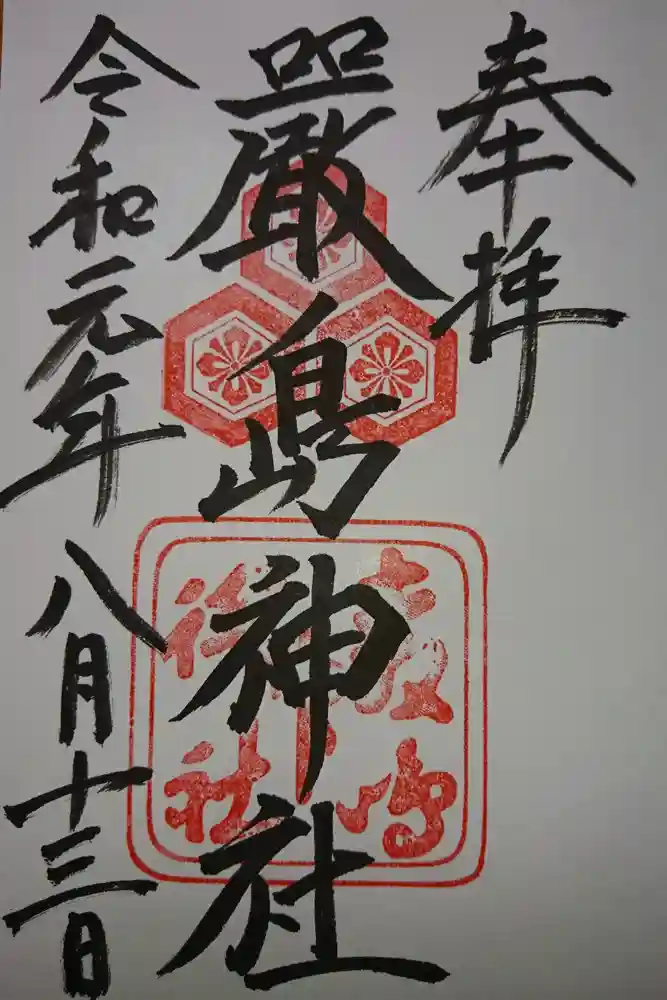 奉拝
嚴島神社
令和元年八月十三日